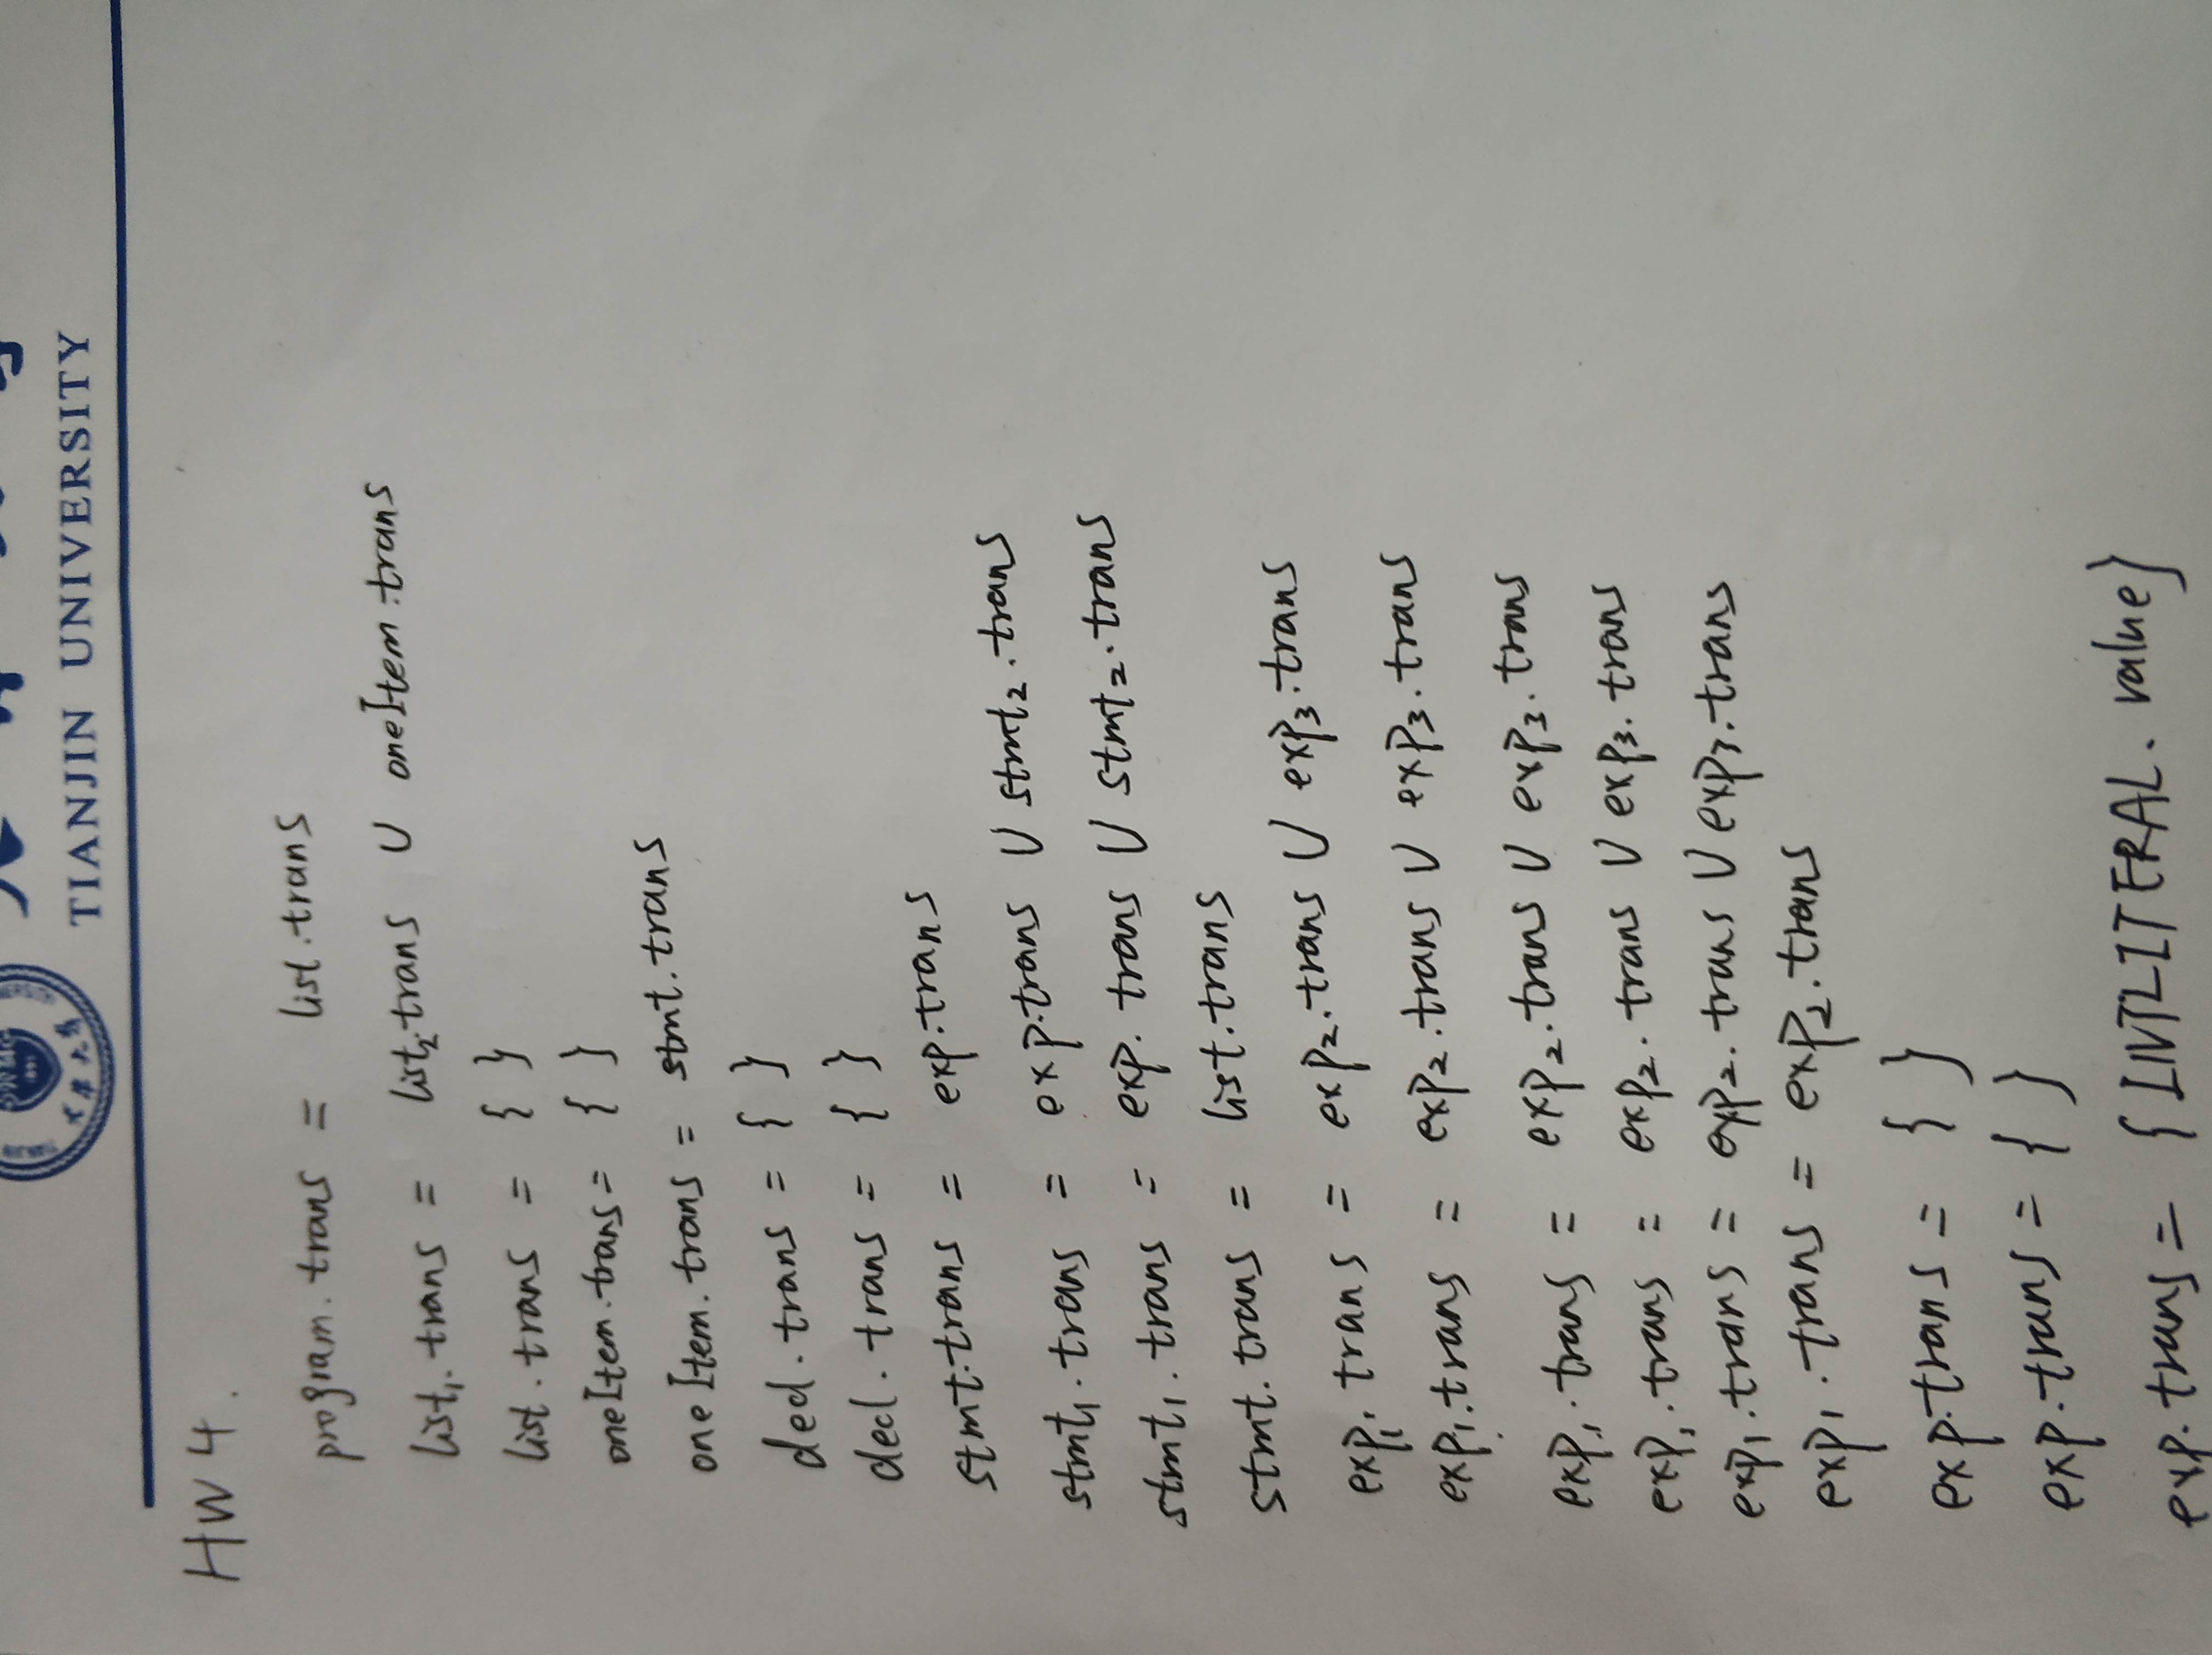 TIANJIN UNIVERSITY
HW 4.
program.trans = list.trans
list₁.trans = list₂.trans ∪ oneItem.trans
list.trans = { }
oneItem.trans = { }
oneItem.trans = stmt.trans
decl.trans = { }
decl.trans = { }
stmt.trans = exp.trans
stmt₁.trans = exp.trans ∪ stmt₂.trans
stmt₁.trans = exp.trans ∪ stmt₂.trans
stmt.trans = list.trans
exp₁.trans = exp₂.trans ∪ exp₃.trans
exp₁.trans = exp₂.trans ∪ exp₃.trans
exp₁.trans = exp₂.trans ∪ exp₃.trans
exp₁.trans = exp₂.trans ∪ exp₃.trans
exp₁.trans = exp₂.trans ∪ exp₃.trans
exp₁.trans = exp₂.trans
exp.trans = { }
exp.trans = { }
exp.trans = {INTLITERAL.value}